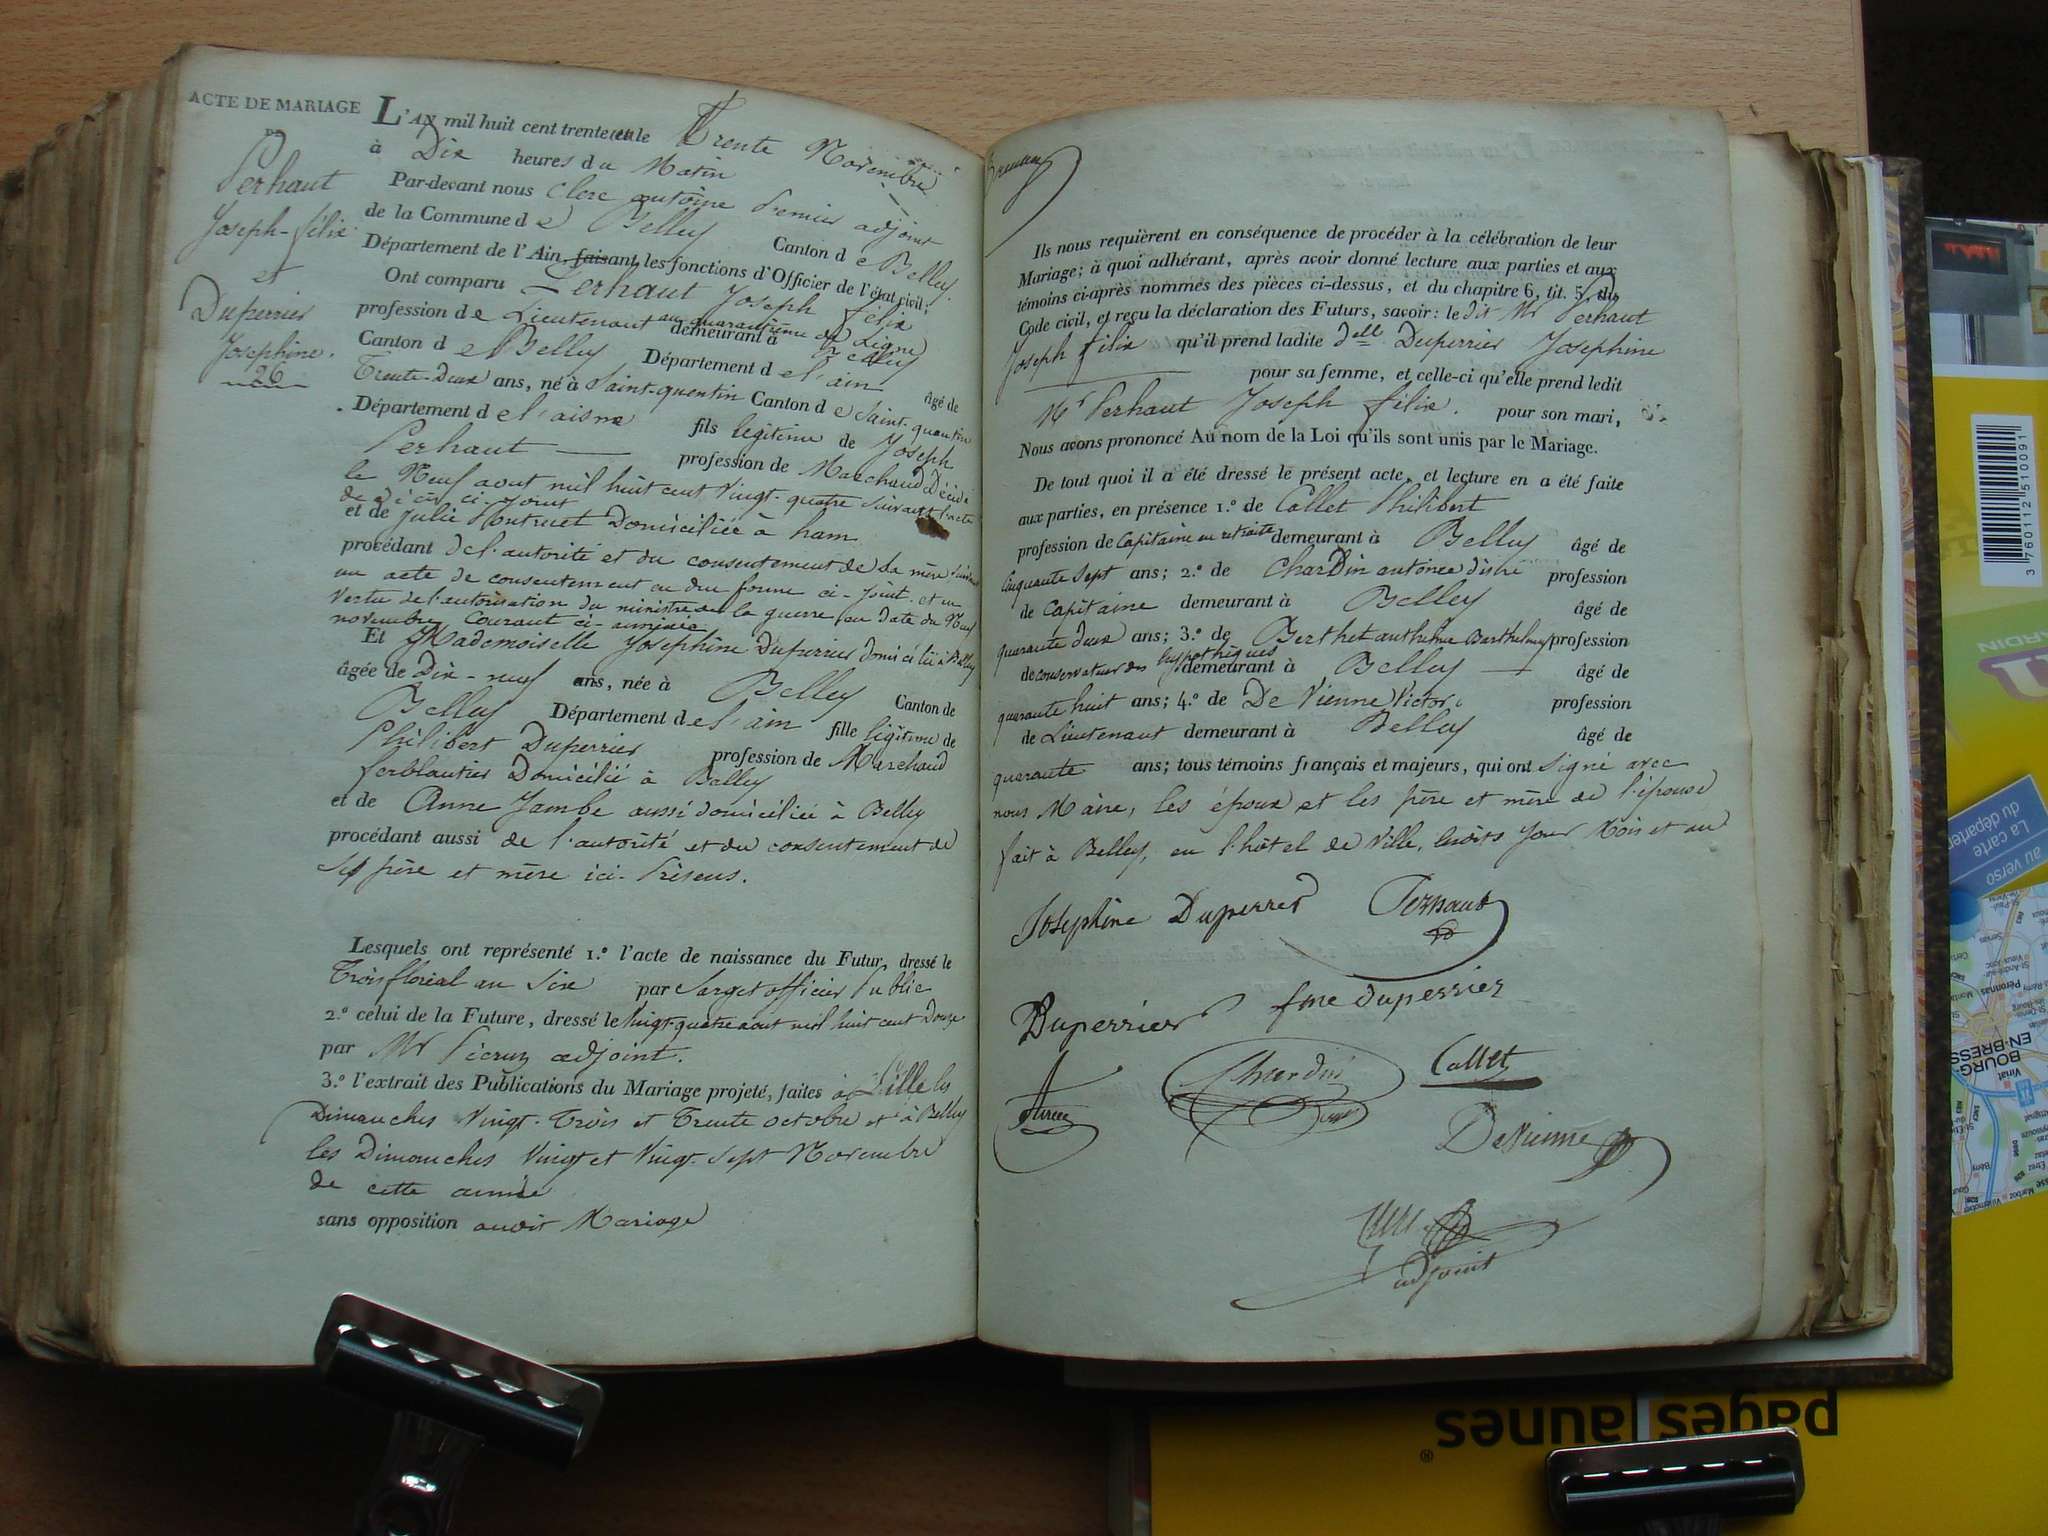 ACTE DE MARIAGE
Perhaut
Joseph-félix
et
Duperrier
Josephine.
26
L'AN mil huit cent trente et un le Trente Novembre
à Dix heures du Matin
Par-devant nous Clerc antoine Premier adjoint
de la Commune de Belley Canton de Belley
Département de l'Ain, faisant les fonctions d'Officier de l'état civil,
Ont comparu Perhaut Joseph félix
profession de Lieutenant au quarantième de Ligne demeurant à Belley
Canton de Belley Département de l'ain âgé de
Trente-Deux ans, né à Saint-quentin Canton de Saint-quentin
Département de l'aisne fils légitime de Joseph
Perhaut profession de Marchand Décédé
le Neuf aout mil huit cent vingt-quatre suivant l'acte
de décès ci-Joint
et de Julie Domiciliée à ham
procédant de l'autorité et du consentement de sa mère suivant
un acte de consentement en due forme ci-joint et en
vertu de l'autorisation du ministre de la guerre en date du Neuf
novembre Courant ci-annexée
Et Mademoiselle Josephine Duperrier domiciliée à Belley
âgée de Dix-neuf ans, née à Belley Canton de
Belley Département de l'ain fille légitime de
Philibert Duperrier profession de Marchand
ferblantier Domicilié à Belley
et de Anne Jambe aussi domiciliée à Belley
procédant aussi de l'autorité et du consentement de
ses père et mère ici-Présens.
Lesquels ont représenté 1.° l'acte de naissance du Futur, dressé le
Trois floréal an Six par Sarget officier Public
2.° celui de la Future, dressé le vingt-quatre aout mil huit cent Douze
par Mr adjoint.
3.° l'extrait des Publications du Mariage projeté, faites à Lille les
Dimanches Vingt-Trois et Trente octobre et à Belley
les Dimanches Vingt et Vingt-Sept Novembre
de cette année
sans opposition audit Mariage
Ils nous requièrent en conséquence de procéder à la célébration de leur
Mariage; à quoi adhérant, après avoir donné lecture aux parties et aux
témoins ci-après nommés des pièces ci-dessus, et du chapitre 6, tit. 5, du
Code civil, et reçu la déclaration des Futurs, savoir: le dit Mr Perhaut
Joseph félix qu'il prend ladite delle Duperrier Josephine
pour sa femme, et celle-ci qu'elle prend ledit
Mr Perhaut Joseph félix. pour son mari,
Nous avons prononcé Au nom de la Loi qu'ils sont unis par le Mariage.
De tout quoi il a été dressé le présent acte, et lecture en a été faite
aux parties, en présence 1.° de Callet Philibert
profession de Capitaine en retraite demeurant à Belley âgé de
Cinquante sept ans; 2.° de Chardin antoine profession
de Capitaine demeurant à Belley âgé de
quarante deux ans; 3.° de Berthet anthelme Barthelemy profession
de conservateur des hypothèques demeurant à Belley âgé de
quarante huit ans; 4.° de De Vienne Victor profession
de Lieutenant demeurant à Belley âgé de
quarante ans; tous témoins français et majeurs, qui ont signé avec
nous Maire, les époux et les père et mère de l'épouse
fait à Belley, en l'hôtel de Ville, lesdits Jour Mois et an
Josephine Duperrer Pernaut
Duperrier fme duperrier
Chardin Callet
Devienne
adjoint
3 760112 510091
JARDIN
La carte
du départe
au verso
BOURG-
EN-BRESS
Péronnas
Viriat
pages jaunes®